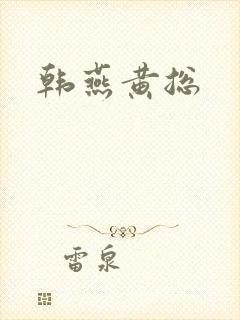 韩燕黄总
雷泉